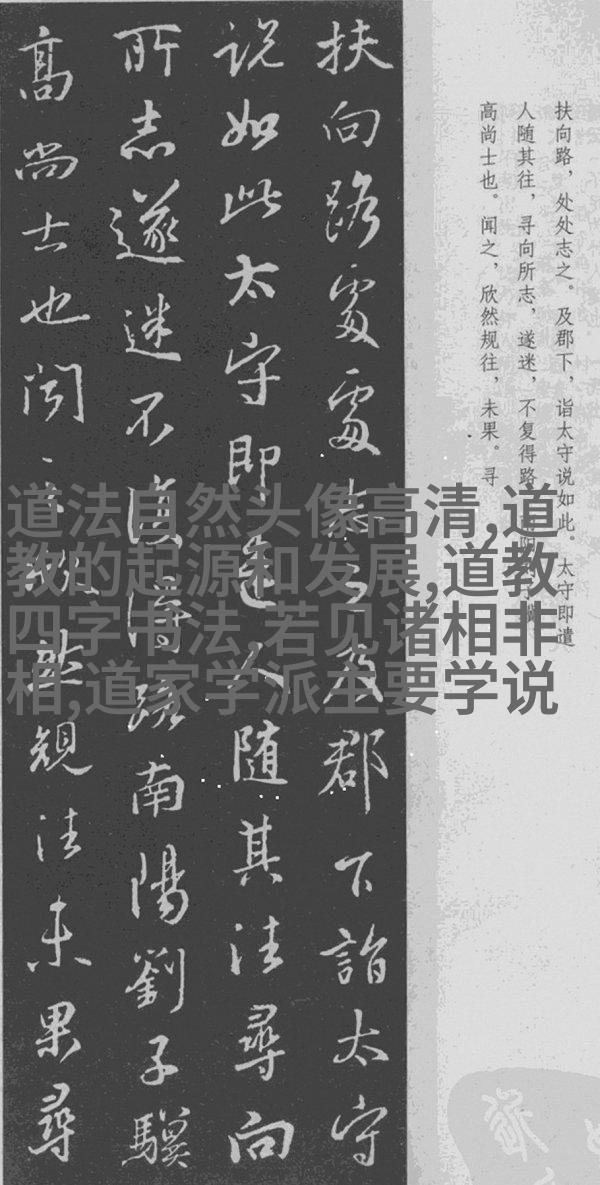 扶向路處處誌之及郡下詣太守
说如此太守即遣人随其往尋向
所志遂迷不復得路南陽劉子驥
高尚士也闻之欣然規往未果尋
扶向路，处处志之。及郡下，诣太守说如此。太守即遣
人随其往，寻向所志，遂迷，不复得路。
高尚士也。闻之，欣然规往，未果。寻
道法自然头像高清,道
教的起源和发展,道教
四字书法,若见诸相非
相,道家学派主要学说